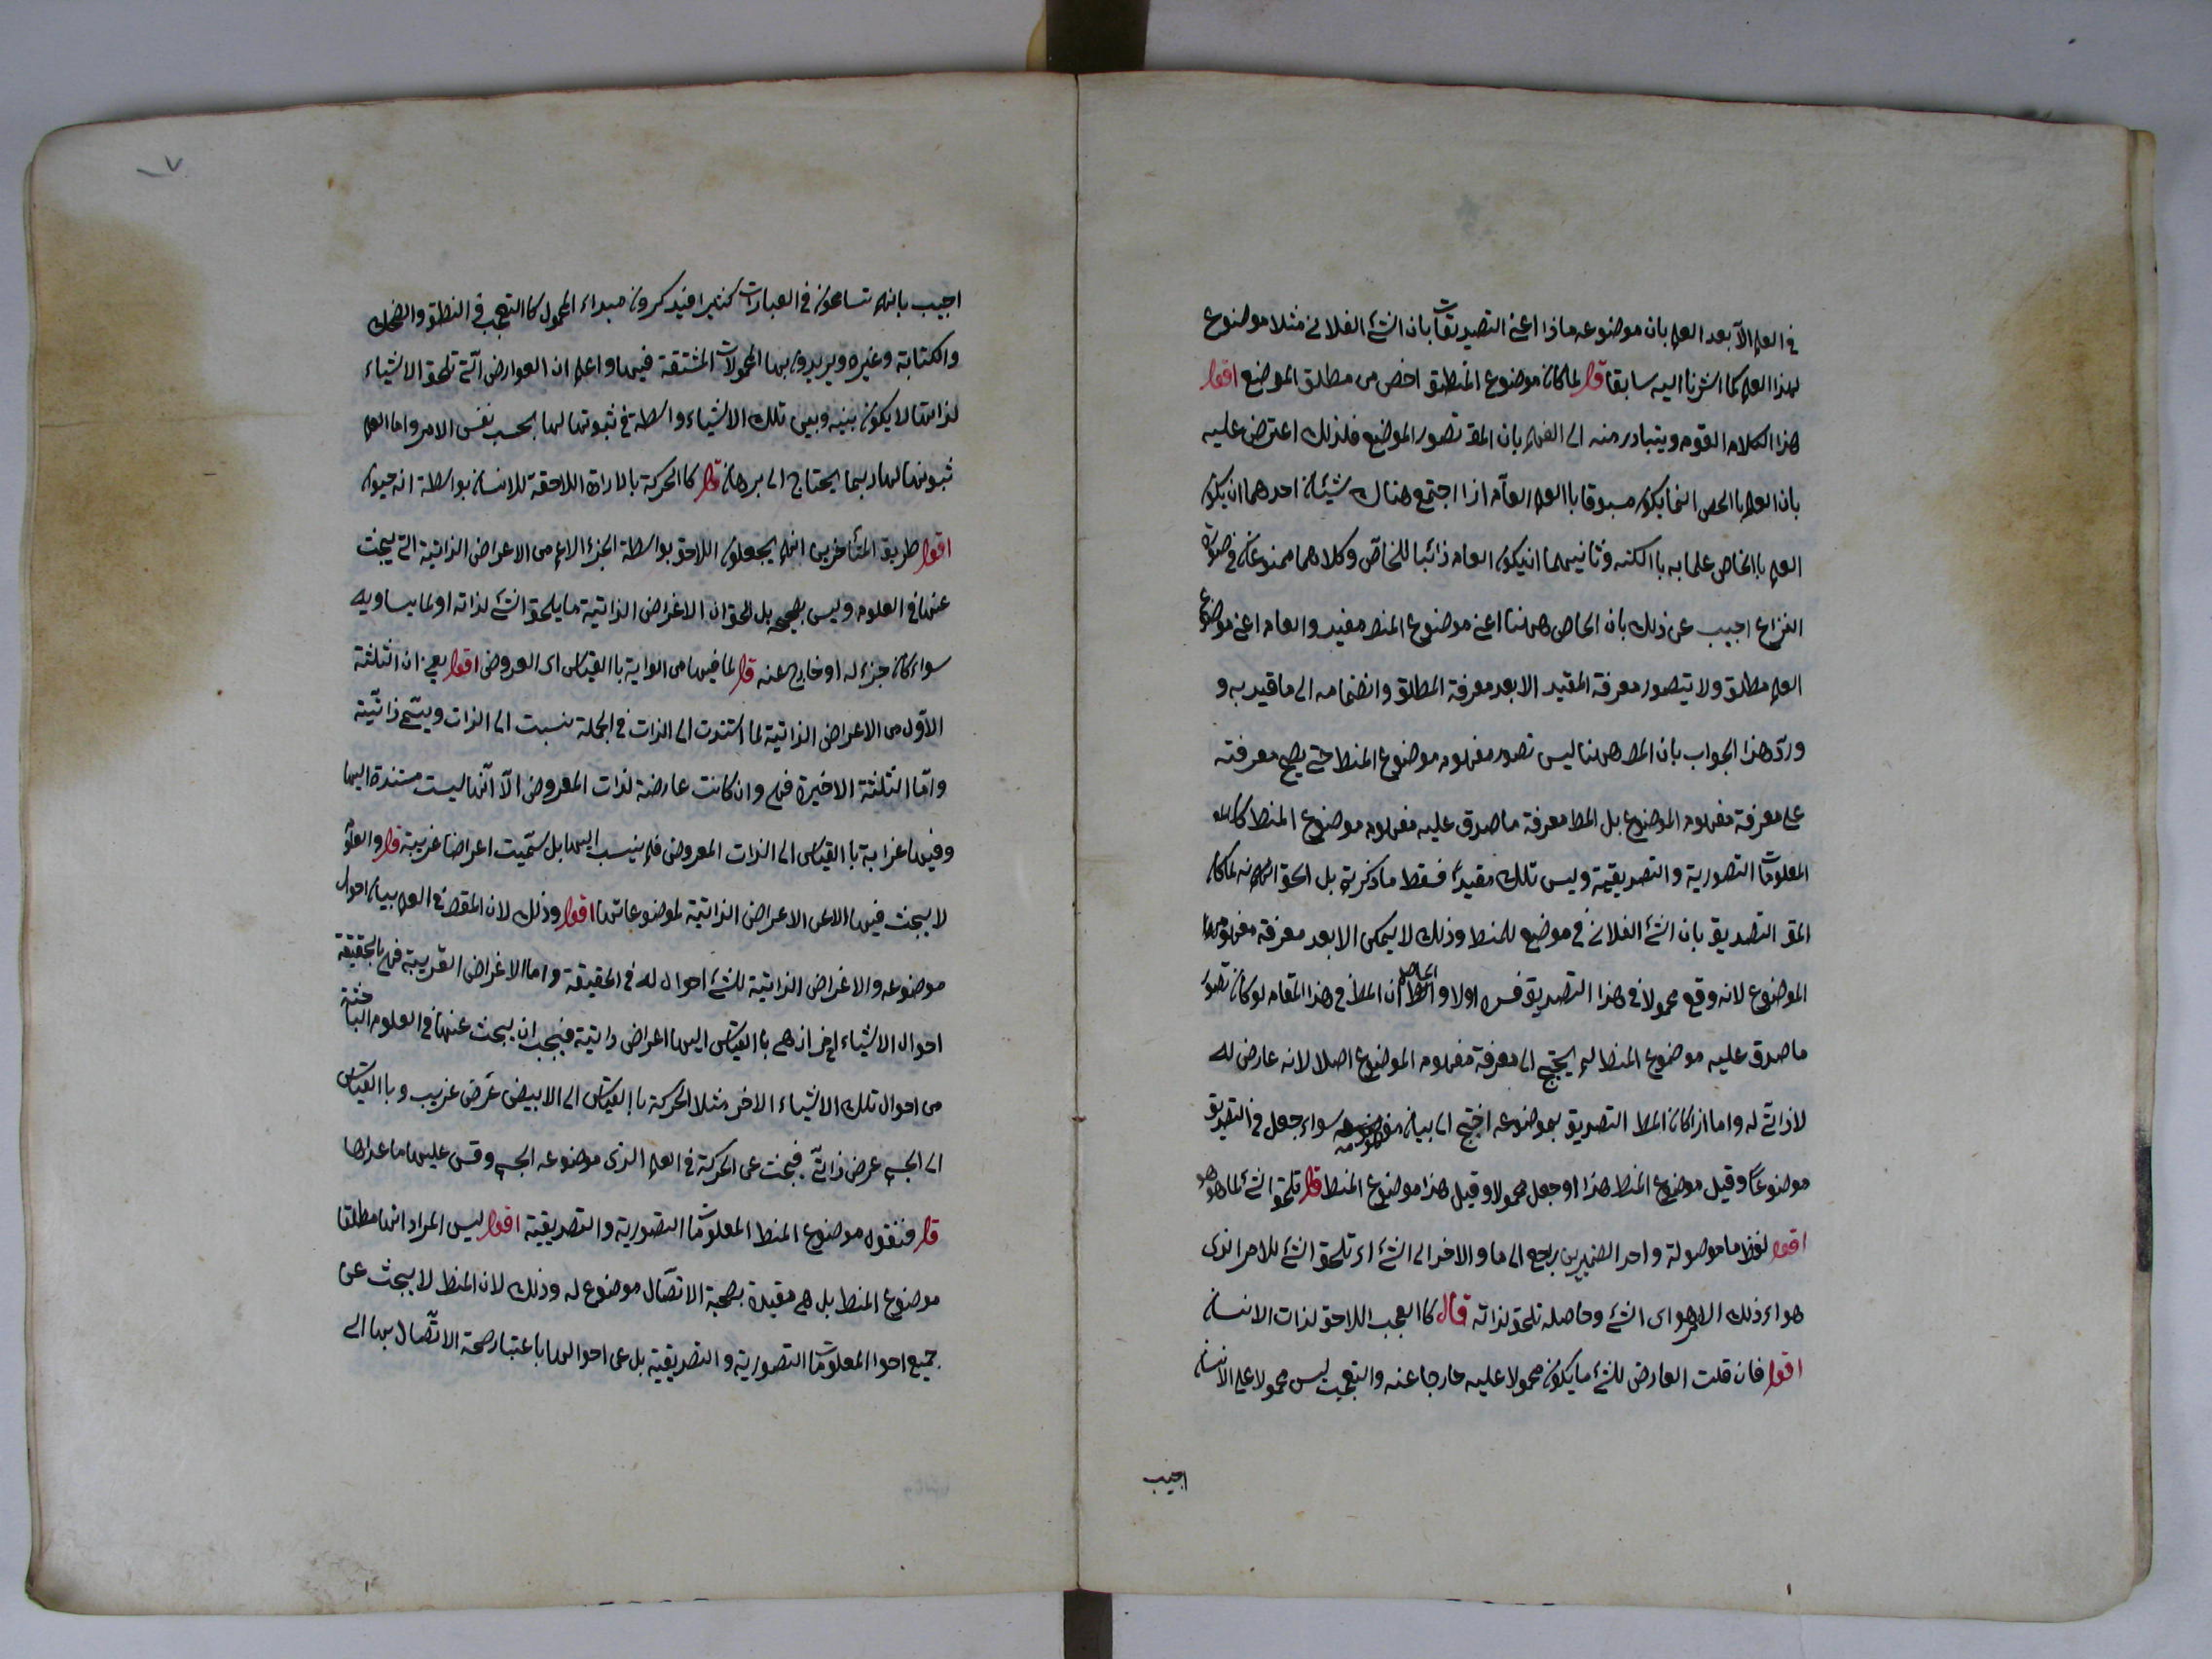 في العلم الا بعد العلم بان موضوعه ماذا اعني التصديقات بان الشئ الفلاني مثلا موضوع
لهذا العلم كما اشرنا اليه سابقا قال لما كان موضوع المنطق اخص من مطلق الموضوع اقول
هذا الكلام القوم ويتبادر منه الى الفهم بان المقـ تصور الموضوع فلذلك اعترض عليه
بان العلم باالخص انما يكون مسبوقا باالعلم العام اذا اجتمع هناك شيئان احدهما ان يكون
العلم باالخاص علما به باالكنه وثانيهما ان يكون العام ذاتيا للخاص وكلاهما ممنوعان في صورة
النزاع اجيب عن ذلك بان الخاص ههنا اعني موضوع المنط مقيد والعام اعني موضوع
العلم مطلق ولا يتصور معرفة المقيد الا بعد معرفة المطلق وانضمامه الى ما قيد به و
ورد هذا الجواب بان المط ههنا ليس تصور مفهوم موضوع المنط حتى يصح معرفته
على معرفة مفهوم الموضوع بل المط معرفة ما صدق عليه مفهوم موضوع المنط
المعلومات التصورية والتصديقية وليس تلك مقيدة فقط ما ذكرته بل الحق انه لما كان
المقـ التصديق بان الشئ الفلاني في موضوع للمنط وذلك لا يمكن الا بعد معرفة مفهوم
الموضوع لانه وقع محمولا في هذا التصديق فسره اولا والحاصل ان المط في هذا المقام لو كان تصور
ما صدق عليه موضوع المنط لم يحتج الى معرفة مفهوم الموضوع اصلا لانه عارض له
لا ذاتي له واما اذا كان المط التصديق بموضوعه احتج الى بيان مفهومه سواء جعل في التصديق
موضوعا وقيل موضوع المنط هذا او جعل محمولا وقيل هذا موضوع المنط قال تلحق الشئ لما هو هو
اقول لفظ ما موصولة واحد الضميرين يرجع الى ما والاخر الى الشئ اي تلحق الشئ للامر الذي
هو اي ذلك الامر هو اي الشئ وحاصله تلحق لذاته قال كا العجب اللاحق لذات الانسان
اقول فان قلت العارض للشئ ما يكون محمولا عليه خارجا عنه والتعجب ليس محمولا على الانسان
اجيب
٧
اجيب بانهم تسامحون في العبارات كثيرا فيذكرون مبداء المحمول كا التعجب في النطق والضحك
والكتابة وغيره ويريدون بها المحمولات المشتقة فيها واعلم ان العوارض التي تلحق الاشياء
لذاتها لا يكون بينه وبين تلك الاشياء واسطة في ثبوتها لها بحسب نفس الامر واما العلم
ثبوتها لها ربما يحتاج الى برهان قال كا الحركة بالارادة اللاحقة للانسان بواسطة انه حيوان
اقول طريق المتأخرين انهم يجعلون اللاحق بواسطة الجزء الاعم من الاعراض الذاتية التي يبحث
عنها في العلوم وليس بصحيح بل الحق ان الاغراض الذاتية ما يلحق الشئ لذاته او لما يساويه
سواء كان جزء له او خارج عنه قال لما فيها من الغرابة باالقياس الى العروض اقول يعني ان الثلثة
الاول من الاعراض الذاتية لما استندت الى الذات في الجملة نسبت الى الذات ويسمى ذاتية
واما الثلثة الاخيرة فهي وان كانت عارضة لذات المعروض الا انها ليست مستندة اليها
وفيها غرابة باالقياس الى الذات المعروض فلم ينسب اليها بل سميت اعراضا غريبة قال والعلوم
لا يبحث فيها الا عن الاعراض الذاتية لموضوعاتها اقول وذلك لان المقصـ في العلم بيان احوال
موضوعه والاغراض الذاتية للشئ احوال له في الحقيقة واما الاغراض الغريبة فهي بالحقيقة
احوال الاشياء اخر اذ هي باالقياس اليها اعراض ذاتية فيجب ان يبحث عنها في العلوم الباحثة
من احوال تلك الاشياء الاخر مثلا الحركة باالقياس الى الابيض عرض غريب وباالقياس
الى الجسم عرض ذاتي فيبحث عن الحركة في العلم الذي موضوعه الجسم وقس عليها ما عداها
قال فنقول موضوع المنط المعلومات التصورية والتصديقية اقول ليس المراد انها مطلقا
موضوع المنط بل هي مقيدة بصحة الاتصال موضوع له وذلك لان المنط لا يبحث عن
جميع احوال المعلومات التصورية والتصديقية بل عن احوالها باعتبار صحة الاتصال بها الى